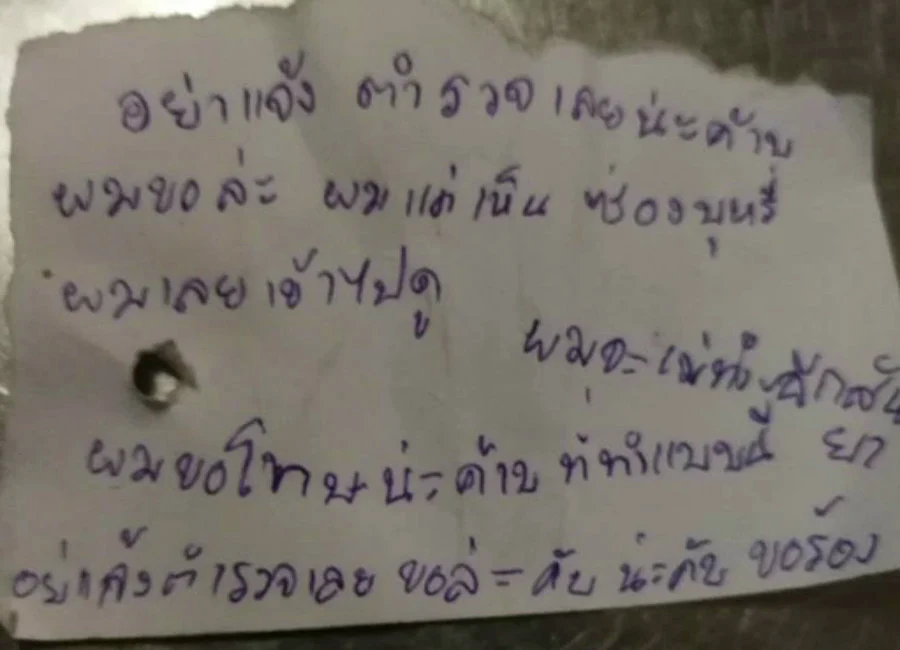 อย่าแจ้ง ตำรวจเลยน่ะค้าบ
ผมขอล่ะ ผมแค่เห็น ซ่องบุหรี่
ผมเลยเข้าไปดู
ผมจะไม่ทำอีก
ผมขอโทษน่ะค้าบ ที่ทำแบบนี้ ยา
อย่าแจ้งตำรวจเลย ขอล่ะ คับ น่ะคับ ขอร้อง